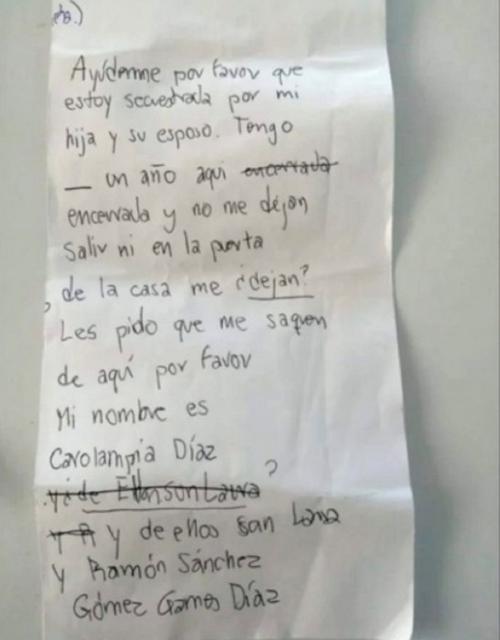 Ayúdenme por favor que
estoy secuestrada por mi
hija y su esposo. Tengo
_ un año aqui encerrada
encerrada y no me dejan
Salir ni en la porta
de la casa me ¿dejan?
Les pido que me saquen
de aquí por favor
Mi nombre es
Carolampia Díaz
?
y de ellos san Lama
y Ramón Sánchez
Gómez Gomes Díaz